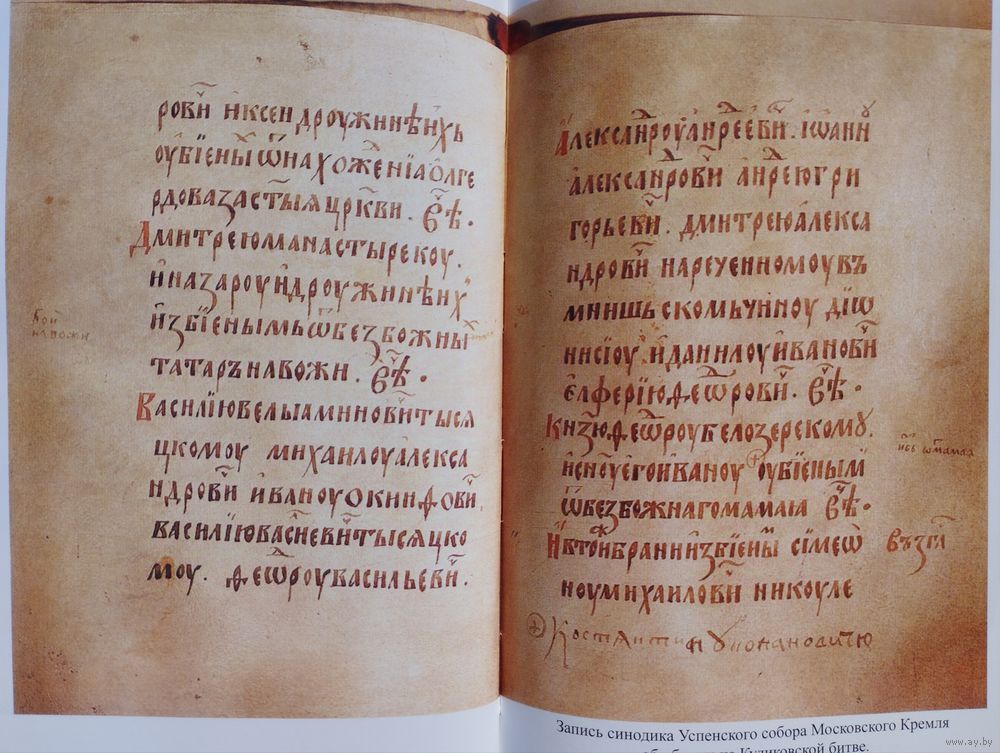 рови҃ и҆ ксен дроужинѣ и҆хъ
оу҆бїены ѿ нахоженїа о҆лге
рдова за ст҃ыѧ цр҃кви . вѣ .
Дмитрею манастыреѵ коу .
и҆ назароу и҆ дроужинѣ и҆х
и҆збїенымь ѿ безбожны
татаръ на вожи . вѣ .
кои
на вожи
Василїю вельѧминови҃ тысѧ
цкомоу михаилоу а҆лекса
ндрови҃ и҆ваноу окинфови҃
василїю васневи҃ тысѧцко
моу . феѡ҃роу васильеви҃ .
Александроу андрееви҃ . іѡанн
александрови҃ андрею гри
горьеви҃ . дмитрею а҆лекса
ндрови҃ нареченномоу въ
мнишьскомь чиноу дїѡ
нисїоу и҆ данилоу и҆ванови҃
е҆лферїю феѡ҃рови҃ . вѣ .
Кнз҃ю феѡ҃роу белозерскому .
и҆ сн҃оу е҆го и҆ваноу оу҆бїеным
ѿ безбожнаго мамаіа вѣ .
ѿ мамаа
И в то҃и брани и҆збїены сімеѡ
възгл
ноу михаилови҃ никоуле
Костянтину Ионановичю
Запись синодика Успенского собора Московского Кремля
Куликовской битве.
www.ay.by